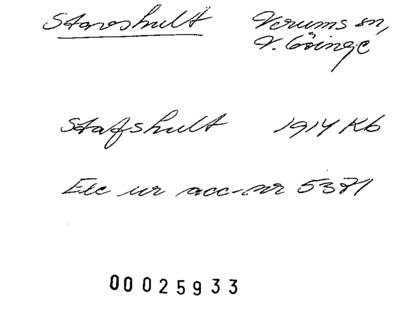 Stavshult Verums sn,
V. Göinge
Stafshult 1914 Kb
Exc ur acc-nr 5371
00025933